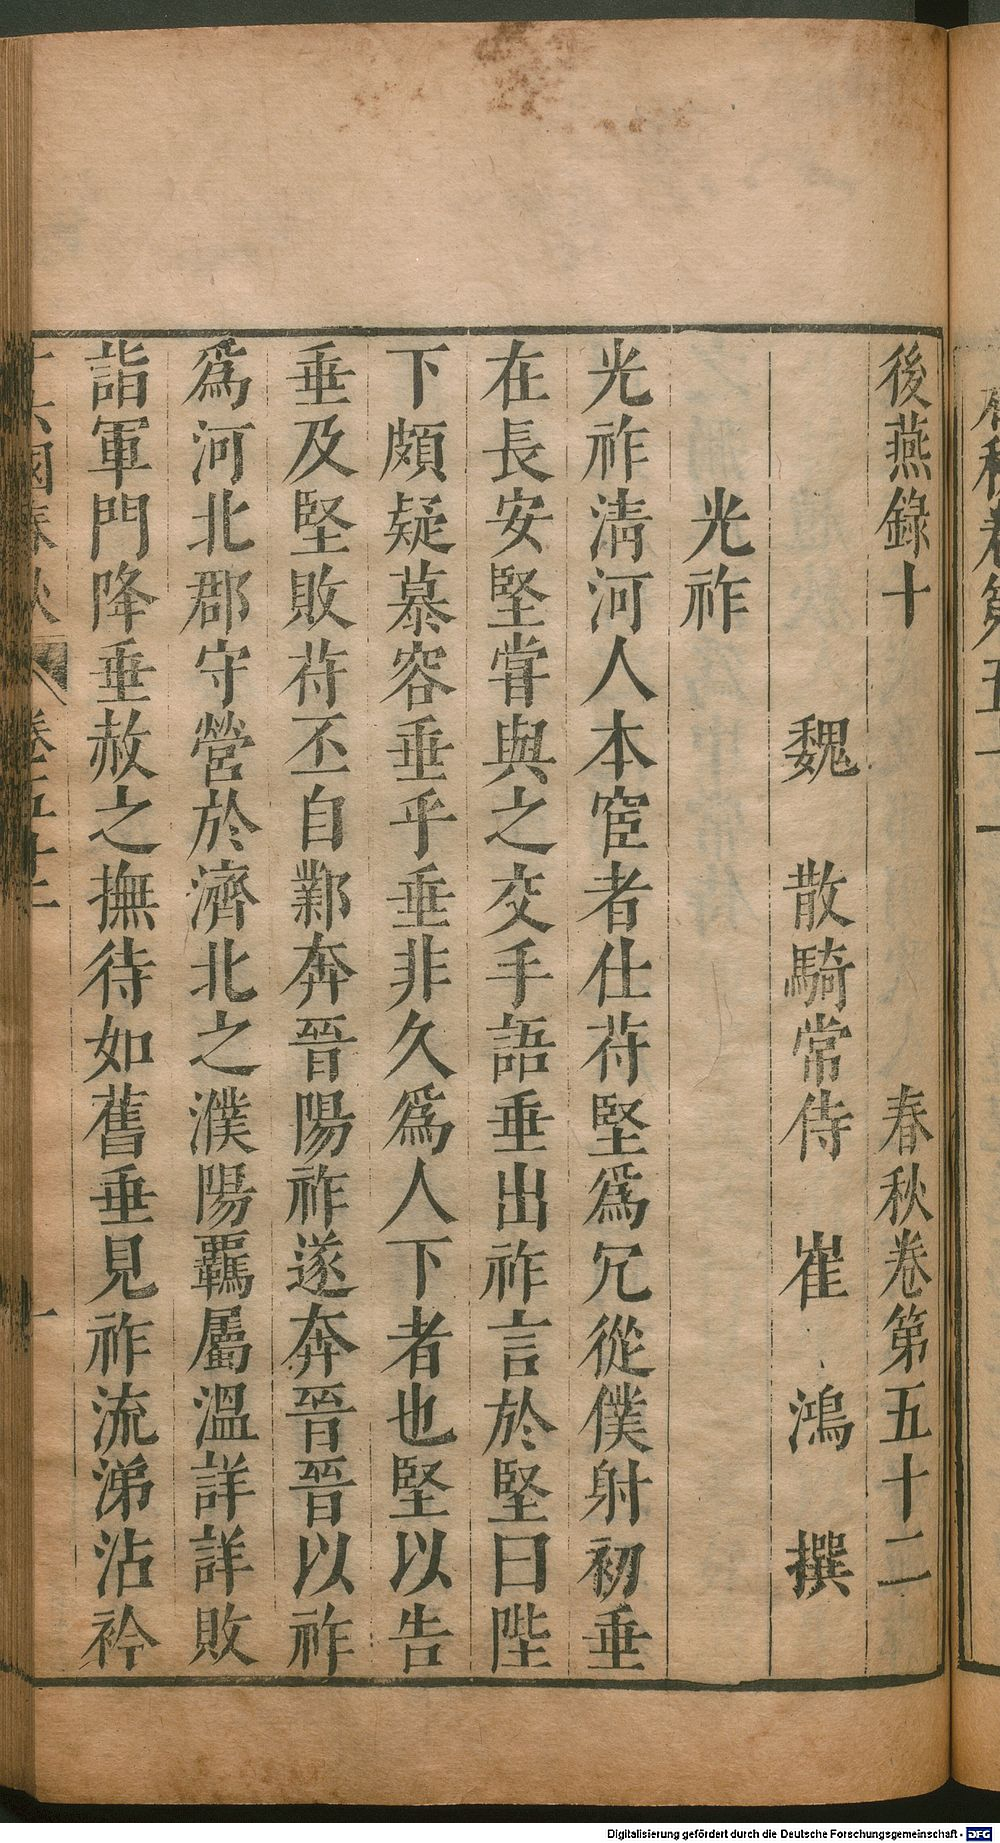 後燕錄十　春秋卷第五十二
魏　散騎常侍　崔　鴻　撰
光祚
光祚淸河人本宦者仕苻堅爲冗從僕射初垂
在長安堅甞與之交手語垂出祚言於堅曰陛
下頗疑慕容垂乎垂非久爲人下者也堅以告
垂及堅敗苻丕自鄴奔晉陽祚遂奔晉晉以祚
爲河北郡守營於濟北之濮陽羈屬溫詳詳敗
詣軍門降垂赦之撫待如舊垂見祚流涕沾衿
國春秋　卷五十二　一
Digitalisierung gefördert durch die Deutsche Forschungsgemeinschaft - DFG